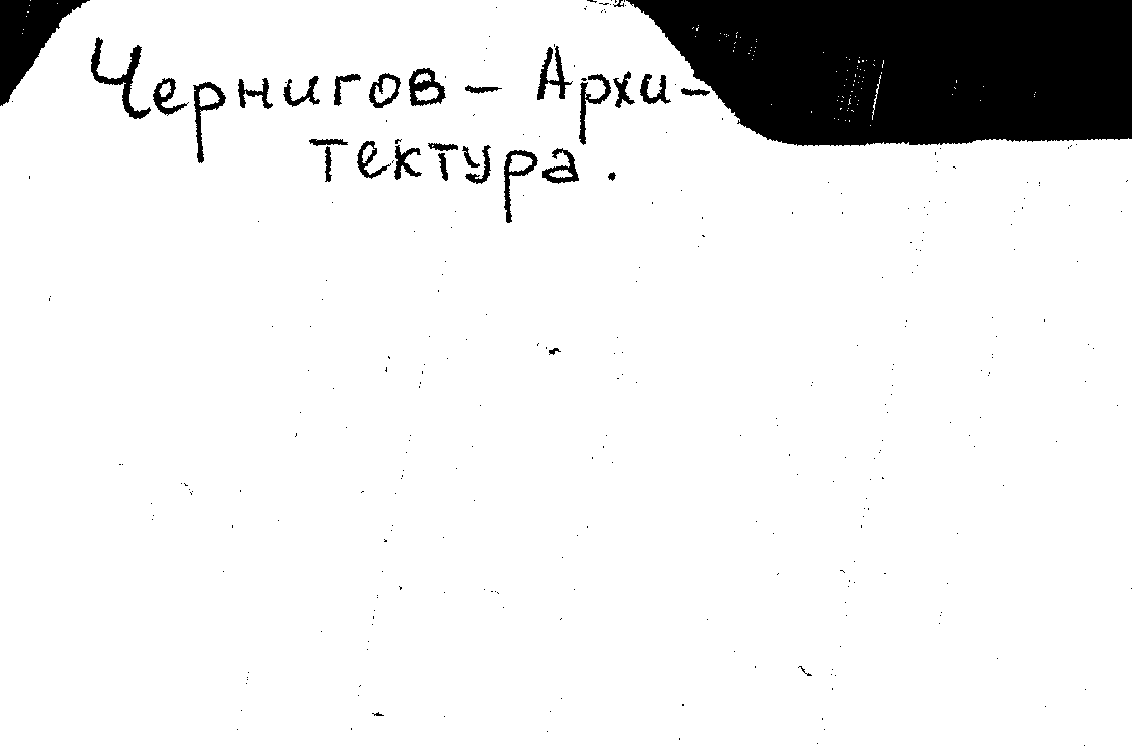 Чернигов – Архи-
тектура.